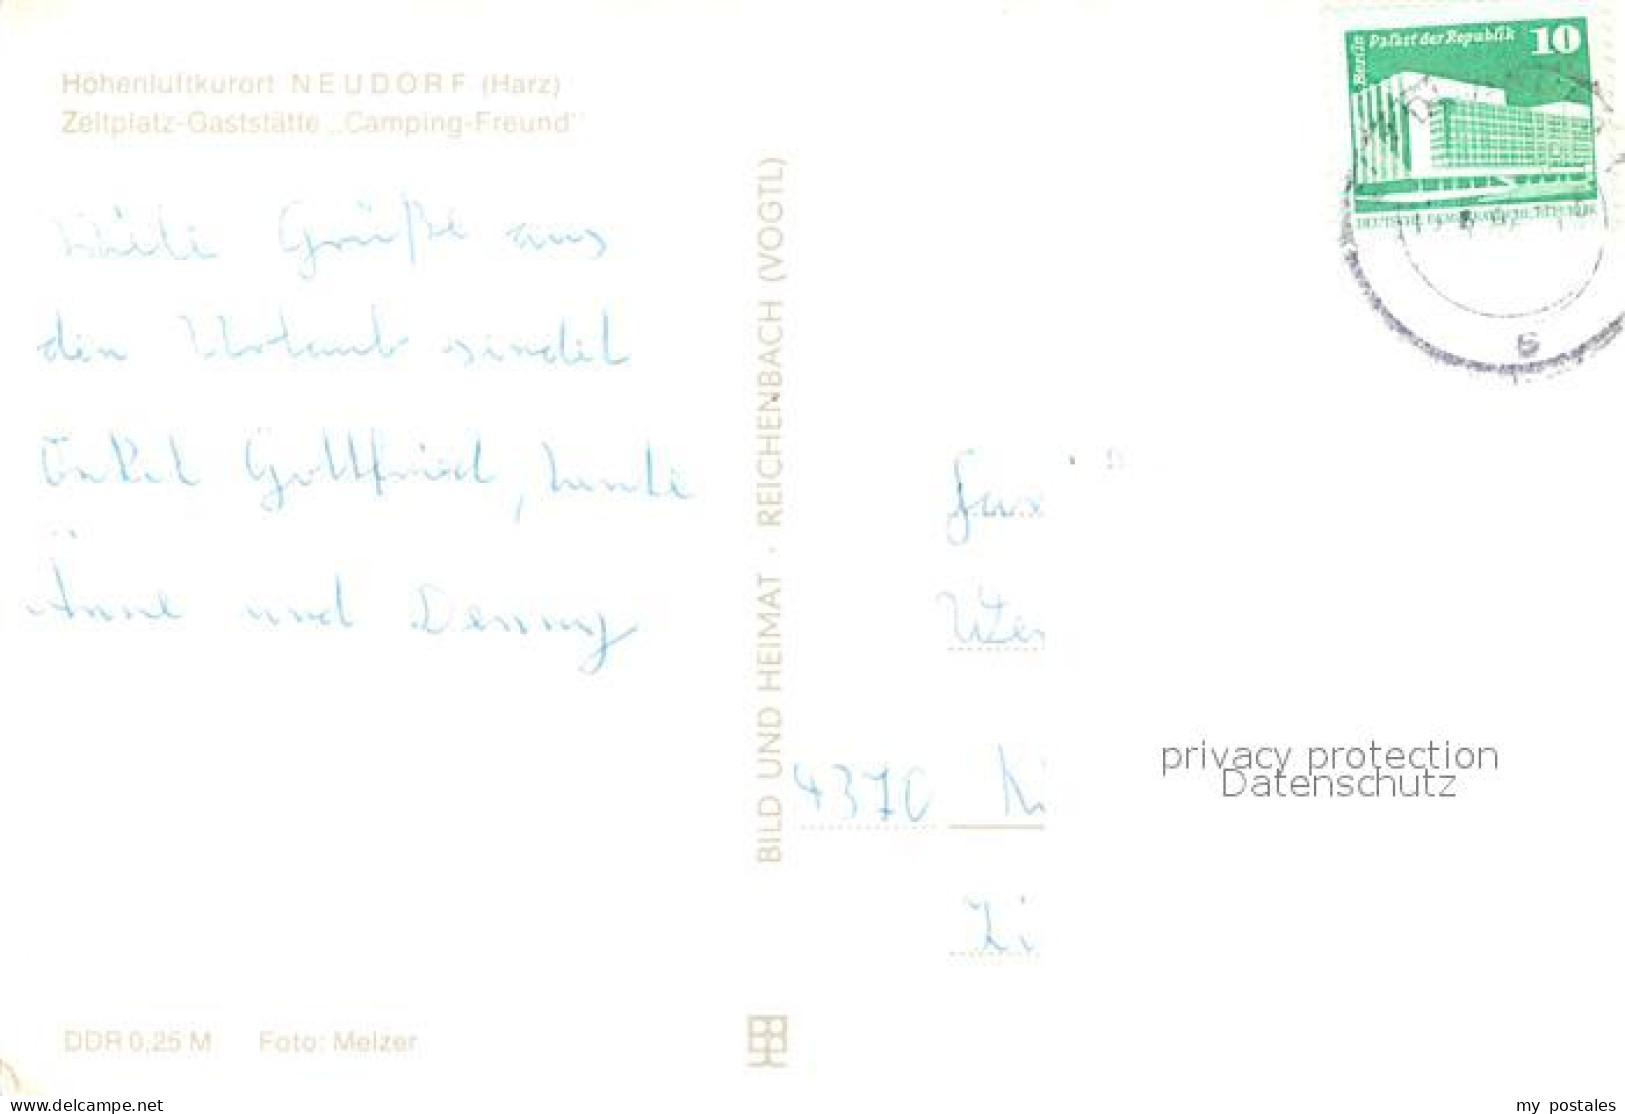 Höhenluftkurort NEUDORF (Harz)
Zeltplatz-Gaststätte „Camping-Freund"
Viele Grüße aus
dem Urlaub sendet
Onkel Gottfried, Tante
Änne und Denny
BILD UND HEIMAT · REICHENBACH (VOGTL)
Berlin Palast der Republik 10
DEUTSCHE DEMOKRATISCHE REPUBLIK
4370
privacy protection
Datenschutz
DDR 0,25 M Foto: Melzer
www.delcampe.net
my_postales